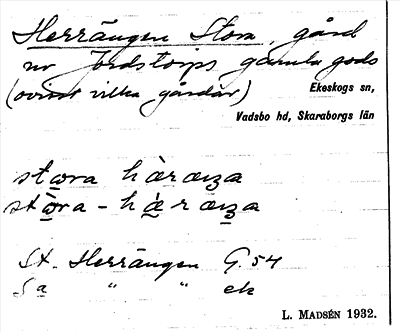 Herrängen Stora, gård
ur Jordstorps gamla gods
(ovisst vilka gårdar)
Ekeskogs sn,
Vadsbo hd, Skaraborgs län
stora hàræŋa
stòra - hæ̀ræŋa
St. Herrängen G. 54
Sa " " ek
L. MADSÉN 1932.